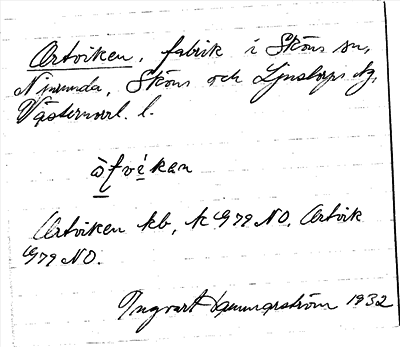 Artviken, fabrik i Sköns sn,
Njurunda, Sköns och Ljustorps tg,
Västernorrl. l.
àṭvékan
Artviken kb, k G79 NO. Artvik
G79 NO.
Ingvart Hammarström 1932